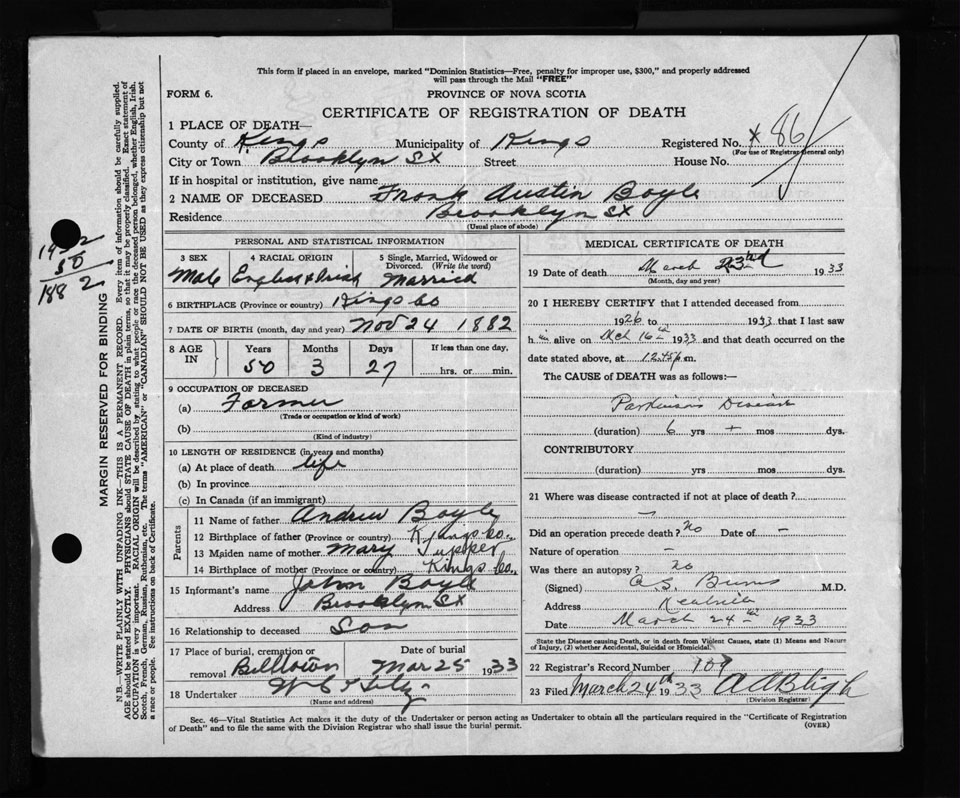 This form if placed in an envelope, marked "Dominion Statistics—Free, penalty for improper use, $300," and properly addressed
will pass through the Mail "FREE"
FORM 6.
PROVINCE OF NOVA SCOTIA
CERTIFICATE OF REGISTRATION OF DEATH
1 PLACE OF DEATH—
County of Kings Municipality of Kings Registered No. x 86
(For use of Registrar General only)
City or Town Brooklyn SX Street House No.
If in hospital or institution, give name
2 NAME OF DECEASED Frank Austin Boyle
Residence Brooklyn SX
(Usual place of abode)
PERSONAL AND STATISTICAL INFORMATION
3 SEX 4 RACIAL ORIGIN 5 Single, Married, Widowed or
Divorced. (Write the word)
Male English & Irish Married
6 BIRTHPLACE (Province or country) Kings Co
7 DATE OF BIRTH (month, day and year) Nov 24 1882
8 AGE IN Years Months Days If less than one day,
50 3 27 hrs. or min.
9 OCCUPATION OF DECEASED
(a) Farmer
(Trade or occupation or kind of work)
(b)
(Kind of industry)
10 LENGTH OF RESIDENCE (in years and months)
(a) At place of death life
(b) In province
(c) In Canada (if an immigrant)
Parents
11 Name of father Andrew Boyle
12 Birthplace of father (Province or country) Kings Co.
13 Maiden name of mother Mary Tupper
14 Birthplace of mother (Province or country) Kings Co.
15 Informant's name John Boyle
Address Brooklyn SX
16 Relationship to deceased Son
17 Place of burial, cremation or Date of burial
removal Billtown Mar 25 1933
18 Undertaker
(Name and address)
MEDICAL CERTIFICATE OF DEATH
19 Date of death March 23rd 1933
(Month, day and year)
20 I HEREBY CERTIFY that I attended deceased from
1926 to 1933 that I last saw
him alive on Mch 16th 1933 and that death occurred on the
date stated above, at 12.45 p m.
The CAUSE of DEATH was as follows:—
Parkinsons Disease
(duration) 6 yrs + mos dys.
CONTRIBUTORY
(duration) yrs mos dys.
21 Where was disease contracted if not at place of death?
—
Did an operation precede death? No Date of —
Nature of operation —
Was there an autopsy? no
(Signed) Burns M.D.
Address Kentville
Date March 24th 1933
State the Disease causing Death, or in death from Violent Causes, state (1) Means and Nature
of Injury, (2) whether Accidental, Suicidal or Homicidal.
22 Registrar's Record Number 109
23 Filed March 24th 1933 A A Bligh
(Division Registrar)
Sec. 46—Vital Statistics Act makes it the duty of the Undertaker or person acting as Undertaker to obtain all the particulars required in the "Certificate of Registration
of Death" and to file the same with the Division Registrar who shall issue the burial permit.
(OVER)
MARGIN RESERVED FOR BINDING
N.B.—WRITE PLAINLY WITH UNFADING INK—THIS IS A PERMANENT RECORD. Every item of information should be carefully supplied.
AGE should be stated EXACTLY. PHYSICIANS should STATE CAUSE OF DEATH in plain terms, so that it may be properly classified. Exact statement of
OCCUPATION is very important. RACIAL ORIGIN will be described by stating to what people or race the deceased person belonged, whether English, Irish,
Scotch, French, German, Russian, Ruthenian, etc. The terms "AMERICAN" or "CANADIAN" SHOULD NOT BE USED as they express citizenship but not
a race or people. See instructions on back of Certificate.
1932
50
1882